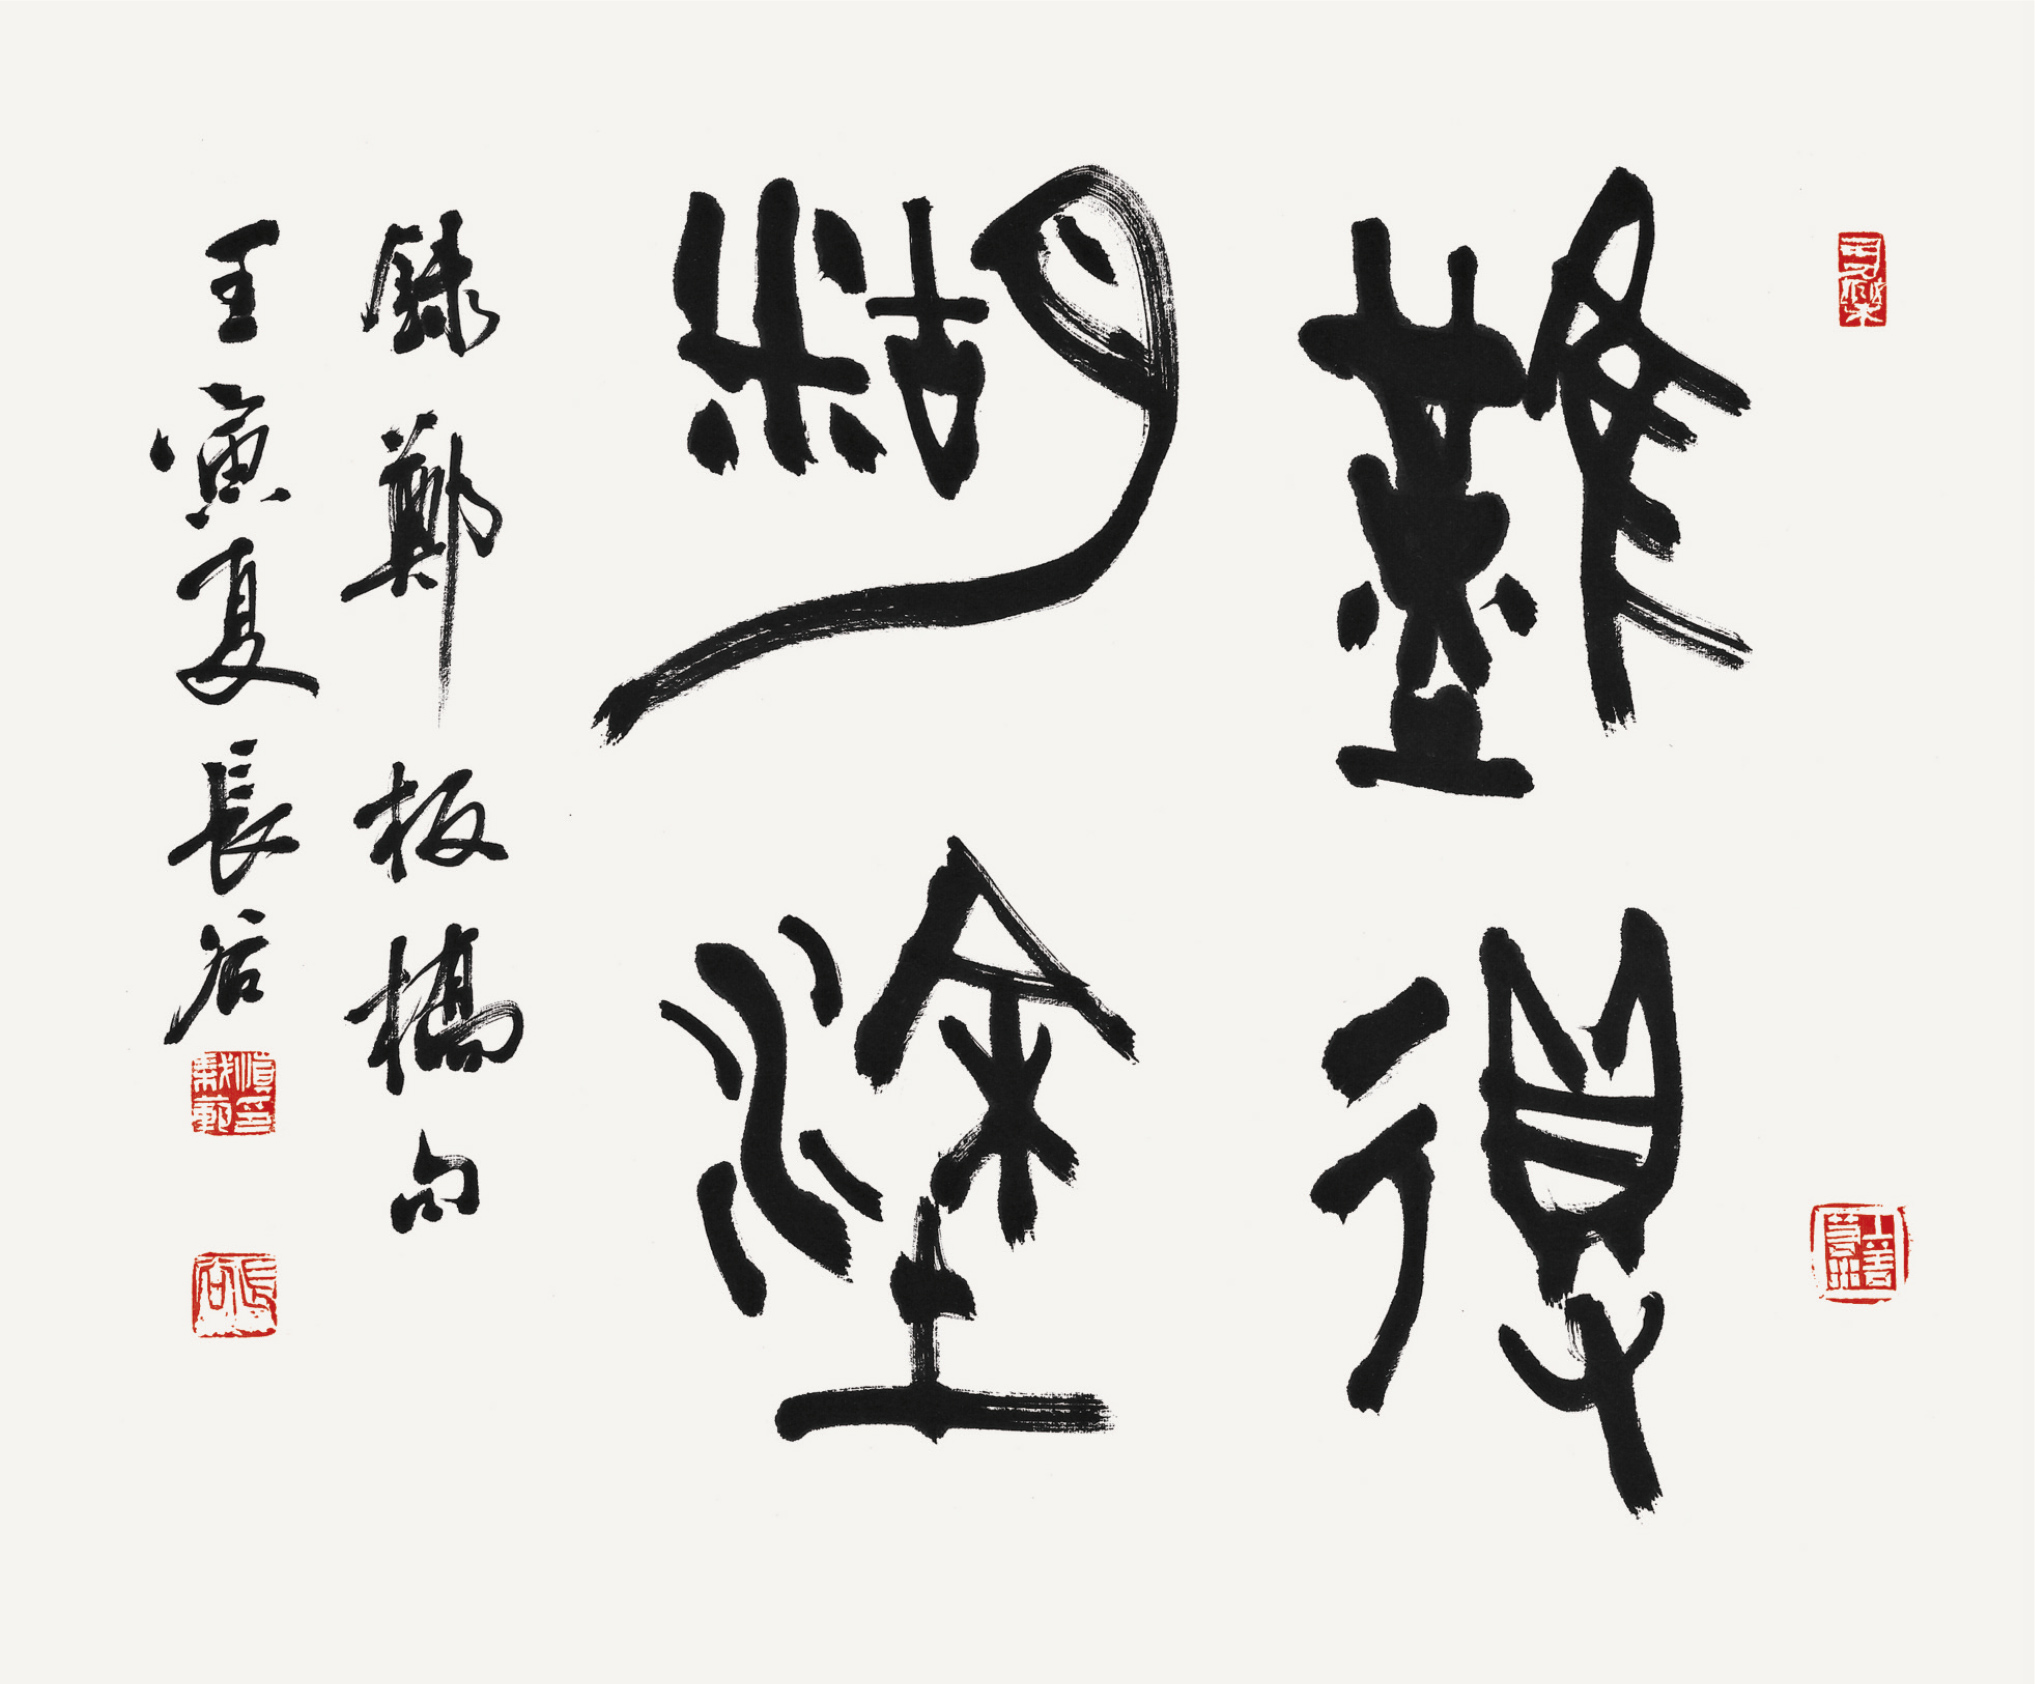 難得
糊塗
録鄭板橋句
壬寅夏長谷